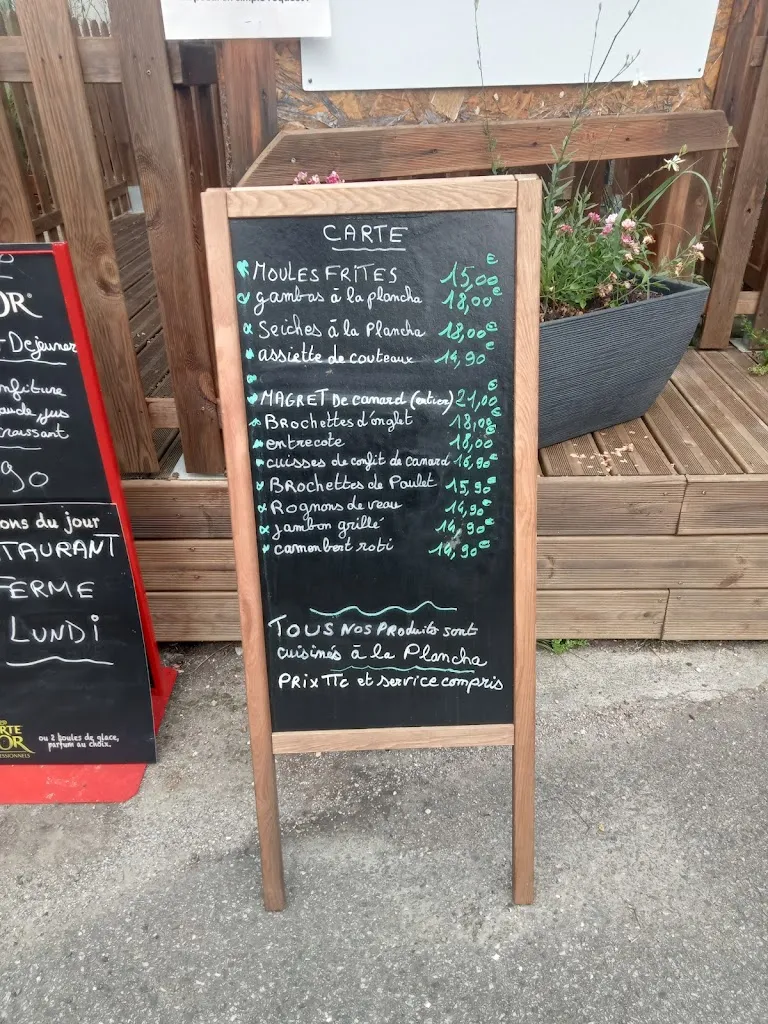 CARTE
MOULES FRITES 15,00€
gambas à la plancha 18,00€
Seiches à la Plancha 18,00€
assiette de couteaux 14,90€
MAGRET De canard (entier) 21,00€
Brochettes d'onglet 18,00€
entrecote 18,00€
cuisses de confit de canard 16,90€
Brochettes de Poulet 15,90€
Rognons de veau 14,90€
jambon grillé 14,90€
camembert roti 14,90€
TOUS NOS PRoduits sont
cuisinés à la Plancha
PRix TTc et service compris
OR
Dejeuner
nfiture
aude, jus
croissant
90
ons du jour
TAURANT
FERME
LUNDi
RTE
OR
ou 2 boules de glace,
parfum au choix.